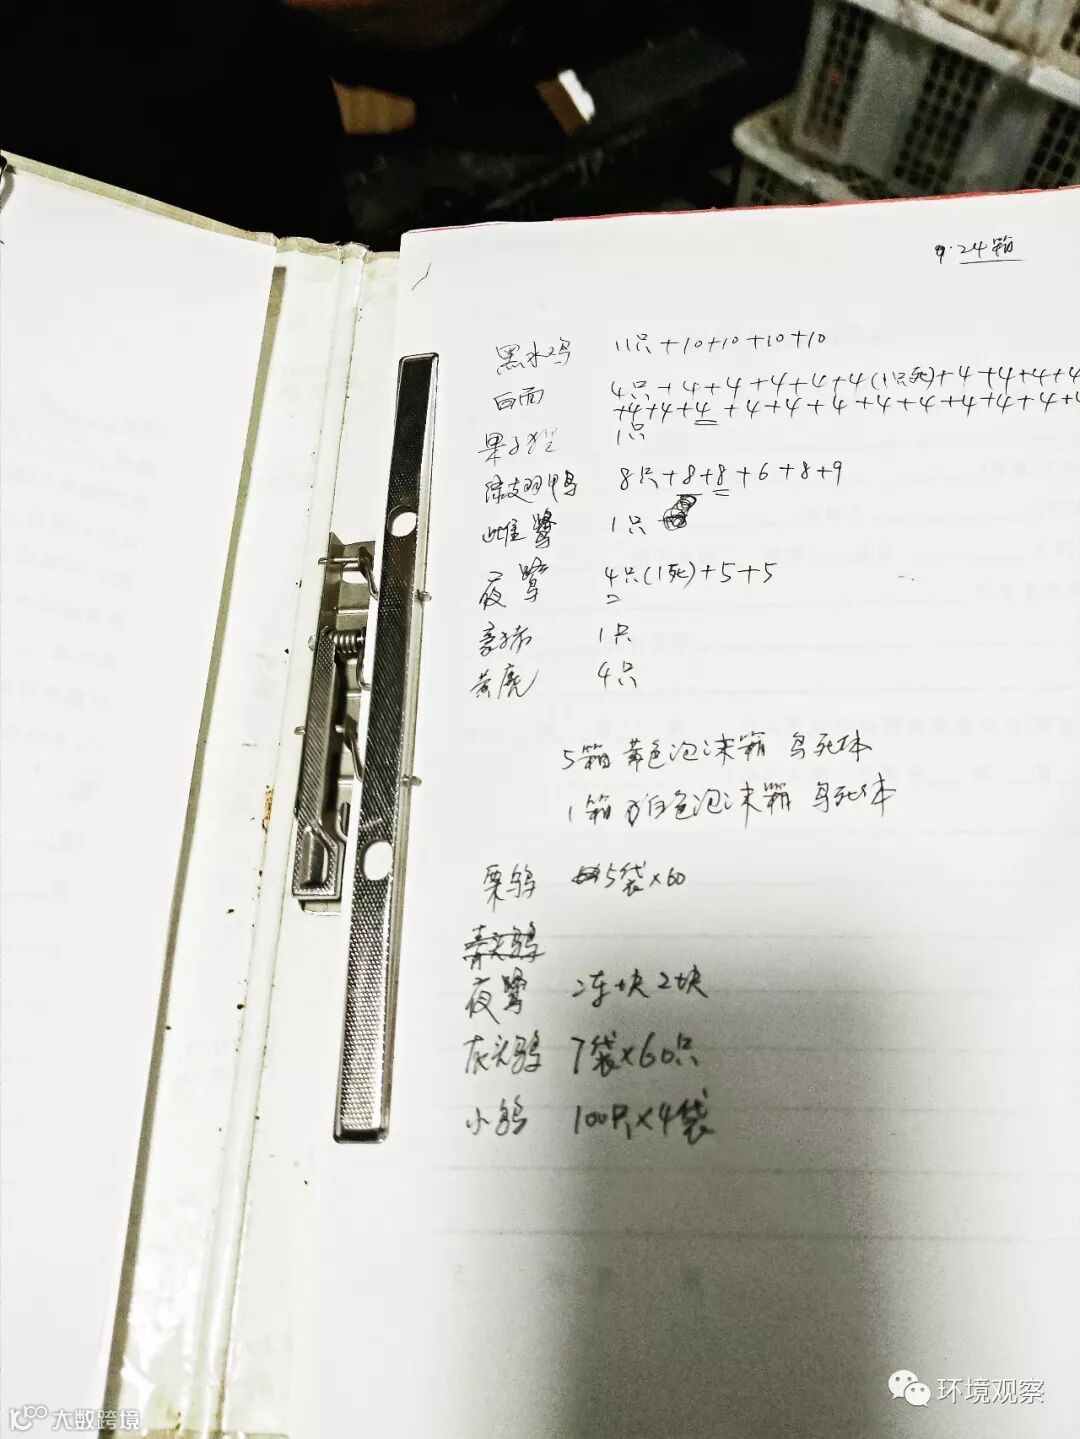 9.24箱
黑水鸡 11只+10+10+10+10
白面 4只+4+4+4+4+4(1只死)+4+4+4+4+4
+4+4+4+4+4+4+4+4+4+4+4+4+4
果子狸 1只
绿翅鸭 8只+8+8+6+8+9
雌鹭 1只
夜鹭 4只(1死)+5+5
豪猪 1只
黄麂 4只
5箱 黄色泡沫箱 鸟死体
1箱 白色泡沫箱 鸟死体
栗鹀 5袋×60
青头鹀
夜鹭 冻块2块
灰头鹀 7袋×60只
小鹀 100只×4袋
环境观察
大数跨境